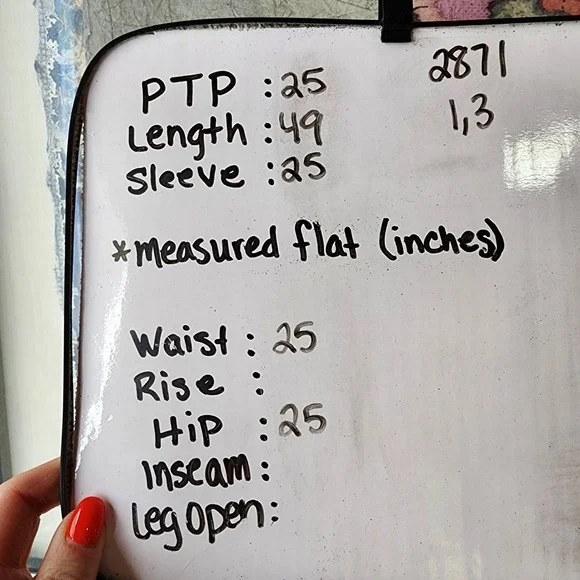 PTP : 25
2871
Length : 49
1,3
Sleeve : 25
*measured flat (inches)
Waist : 25
Rise :
Hip : 25
Inseam :
Leg Open :